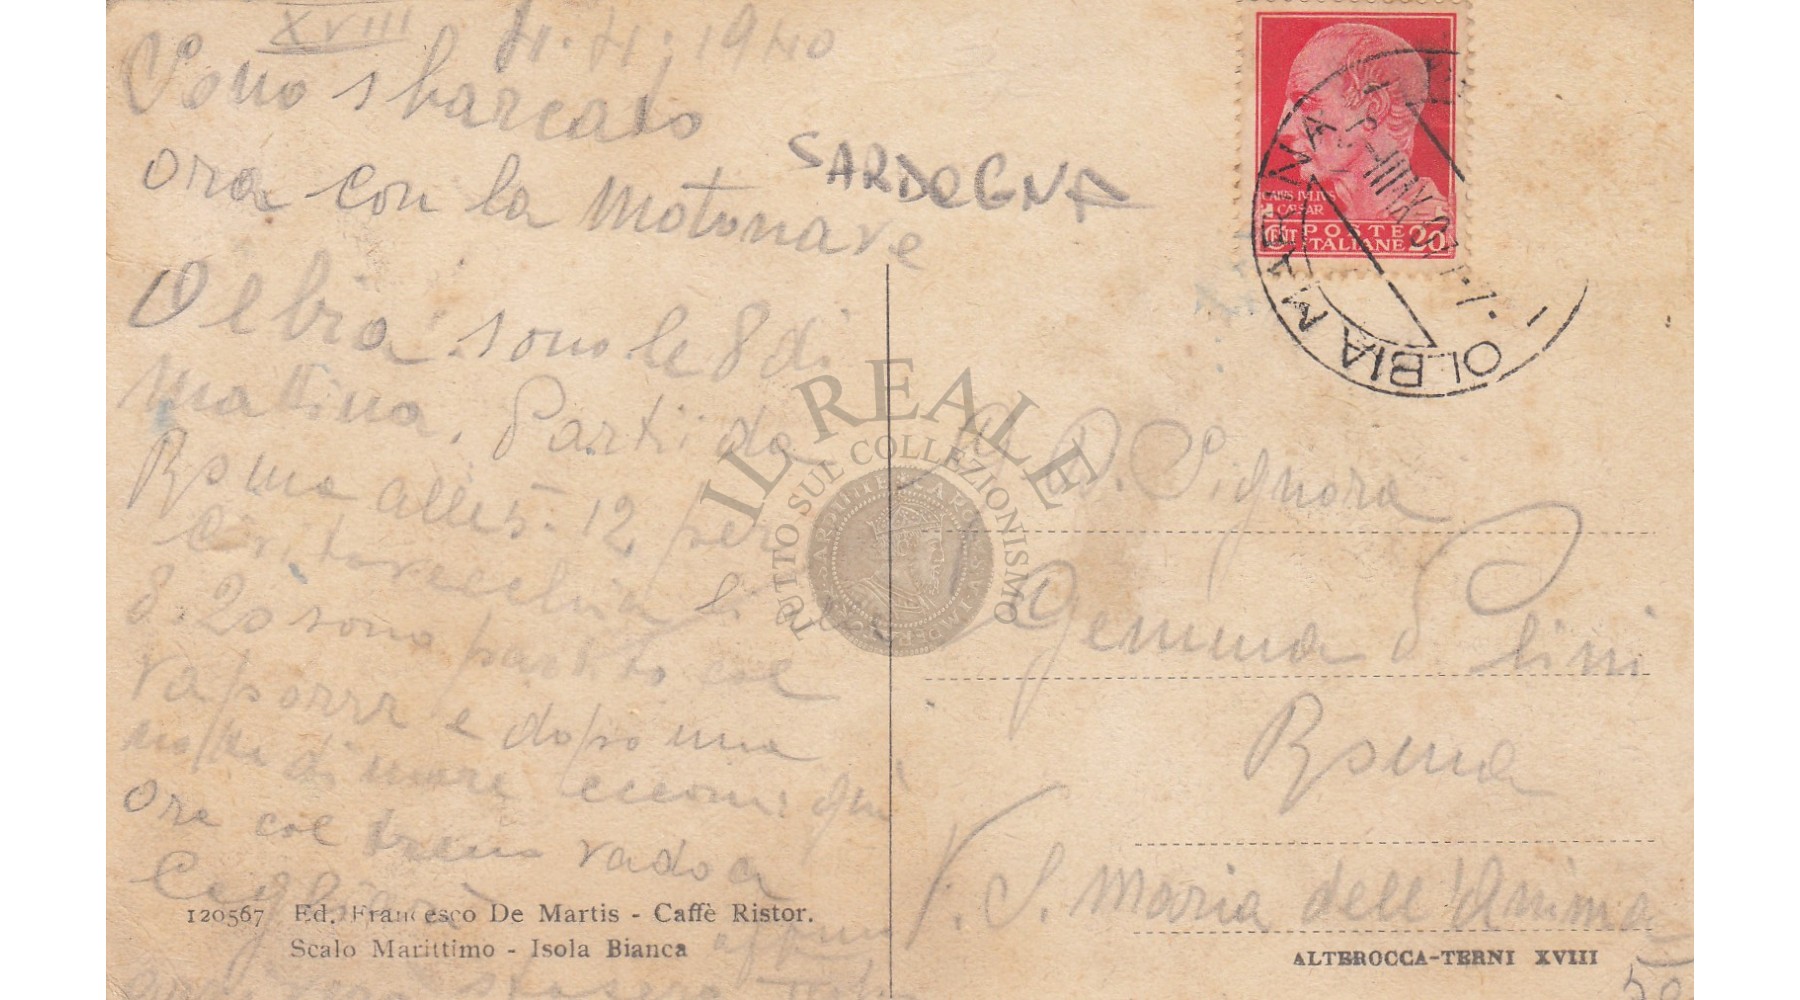 XVIII 4.4.1940
Sono sbarcato
ora con la Motonave
SARDEGNA
Olbia. sono le 8 di
mattina. Partii da
Roma alle 5-12 per
Civitavecchia li
8.20 sono partito col
vaporr e dopo una
notte di mare eccomi qui
ora col treno vado a
Cagliari
stasera
120567 Ed. Francesco De Martis - Caffè Ristor.
Scalo Marittimo - Isola Bianca
CAIVS IVLIVS
CAESAR
CENT POSTE
ITALIANE 20
OLBIA MARINA
IL REALE
TUTTO SUL COLLEZIONISMO
Signora
Gemma Pini
Roma
V. S. Maria dell'Anima
ALTEROCCA-TERNI XVIII